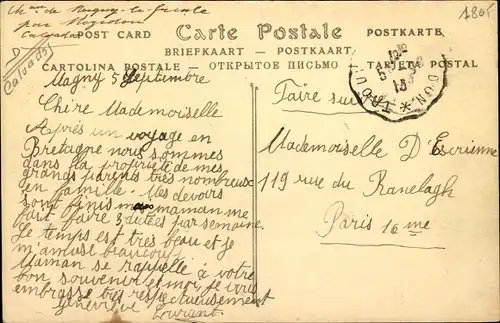 Chau de Magny-la-Freule
par Mézidon
Calvados
D
Calvados
1805
Carte Postale
POST CARD
POSTKARTE
BRIEFKAART — POSTKAART
CARTOLINA POSTALE — ОТКРЫТОЕ ПИСЬМО — TARJETA POSTAL
Magny 5 Septembre
Chère Mademoiselle
Après un voyage en
Bretagne nous sommes
dans la propriété de mes
grands parents très nombreux
en famille. Mes devoirs
sont finis maman me
fait faire 3 dictées par semaine
Le temps est très beau et je
m'amuse beaucoup
Maman se rappelle à votre
bon souvenir et moi je vous
embrasse très respectueusement
Geneviève
Courant.
Faire suivre
Mademoiselle D'Escrienne
119 rue du Ranelagh
Paris 16me